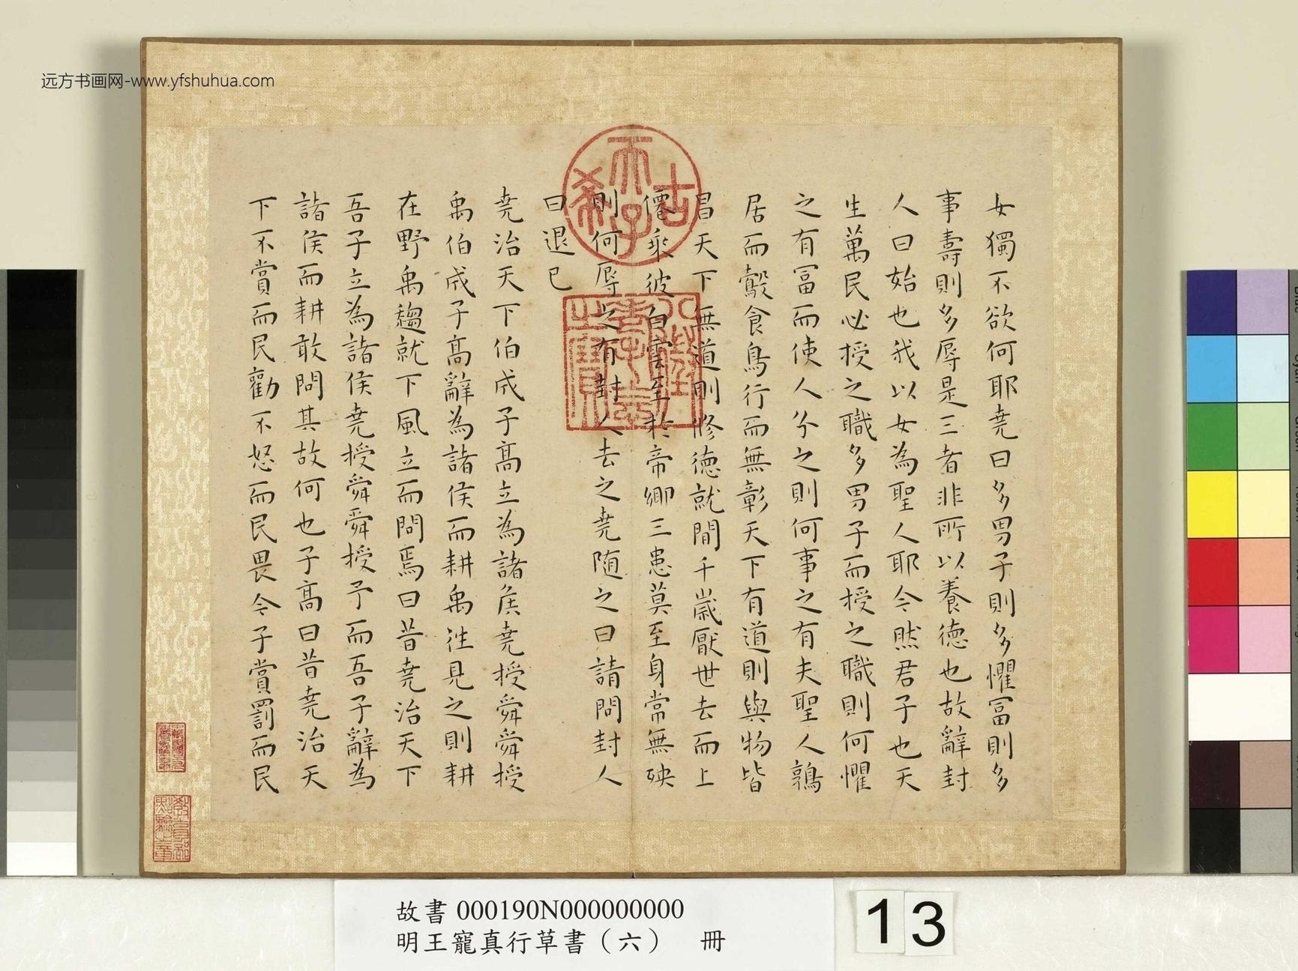 远方书画网-www.yfshuhua.com
女獨不欲何耶堯曰多男子則多懼冨則多
事壽則多辱是三者非所以養德也故辭封
人曰始也我以女為聖人耶今然君子也天
生萬民必授之職多男子而授之職則何懼
之有冨而使人分之則何事之有夫聖人鶉
居而鷇食鳥行而無彰天下有道則與物皆
昌天下無道則修德就閒千歲厭世去而上
僊乘彼白雲至於帝鄉三患莫至身常無殃
則何辱之有封人去之堯随之曰請問封人
曰退已
堯治天下伯成子高立為諸侯堯授舜舜授
禹伯成子高辭為諸侯而耕禹往見之則耕
在野禹趨就下風立而問焉曰昔堯治天下
吾子立為諸侯堯授舜舜授予而吾子辭為
諸侯而耕敢問其故何也子高曰昔堯治天
下不賞而民勸不怒而民畏今子賞罰而民
古希天子
八徵耄念之寶
故書 000190N000000000
明王寵真行草書（六） 冊
13